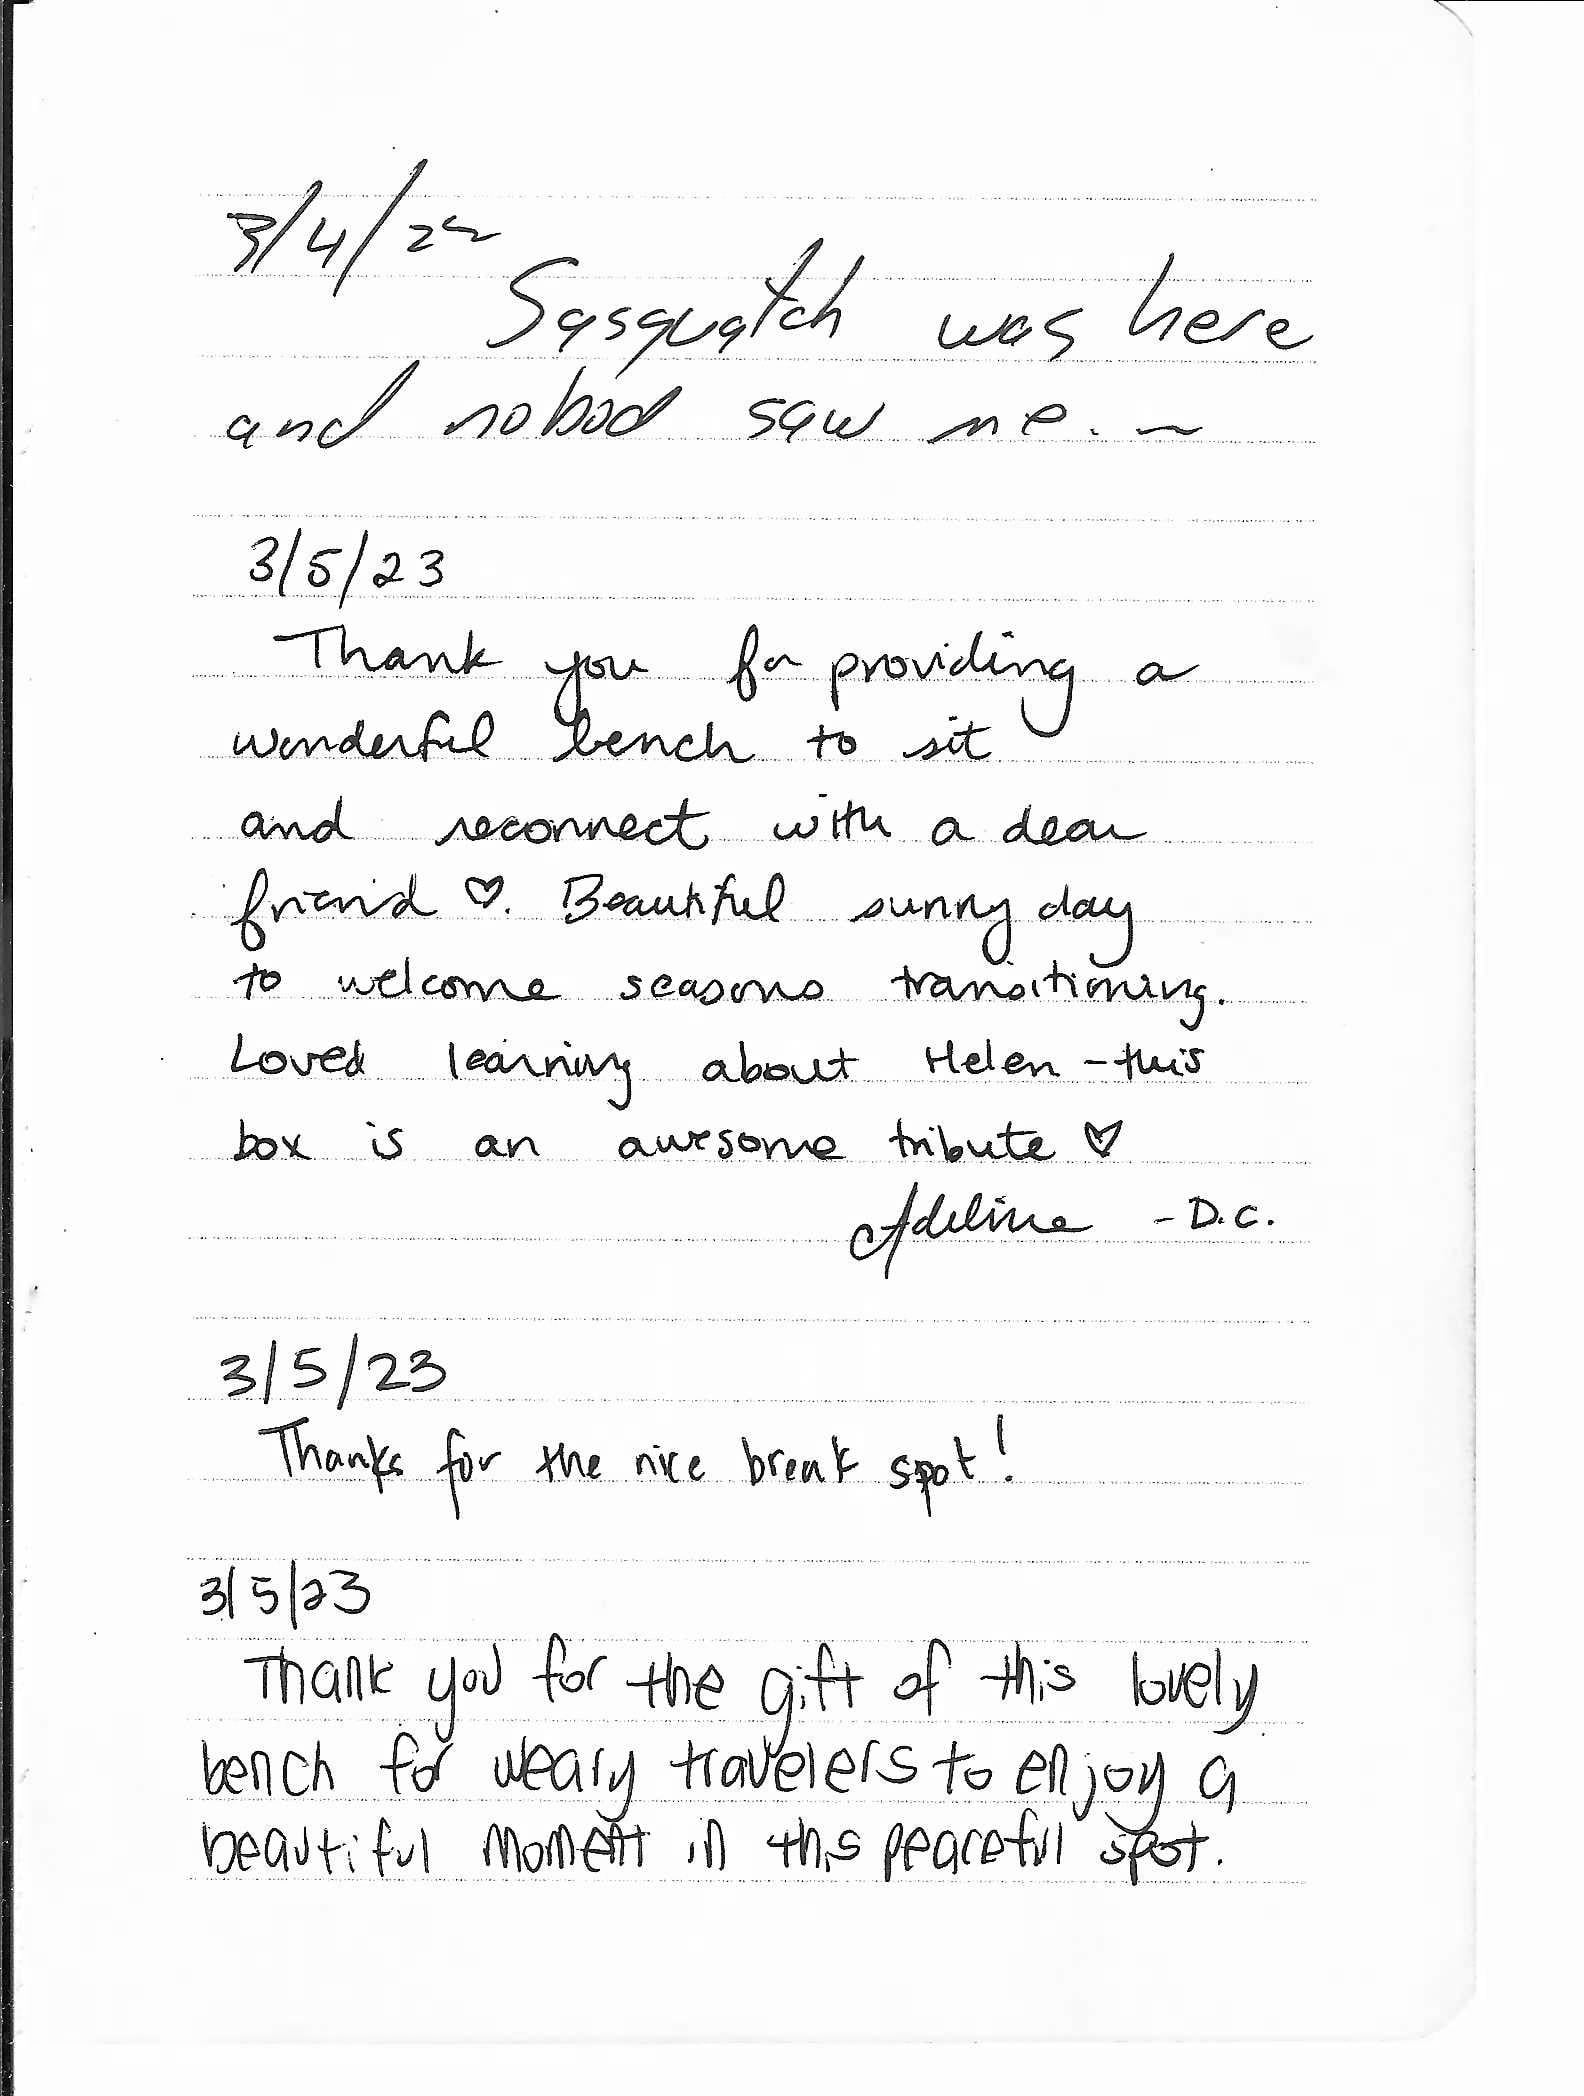 3/4/22
Sasquatch was here
and nobod saw me. ~
3/5/23
Thank you for providing a
wonderful bench to sit
and reconnect with a dear
friend ♡. Beautiful sunny day
to welcome seasons transitioning.
Loved learning about Helen - this
box is an awesome tribute ♡
Adeline - D.C.
3/5/23
Thanks for the nice break spot!
3/5/23
Thank you for the gift of this lovely
bench for weary travelers to enjoy a
beautiful moment in this peaceful spot.